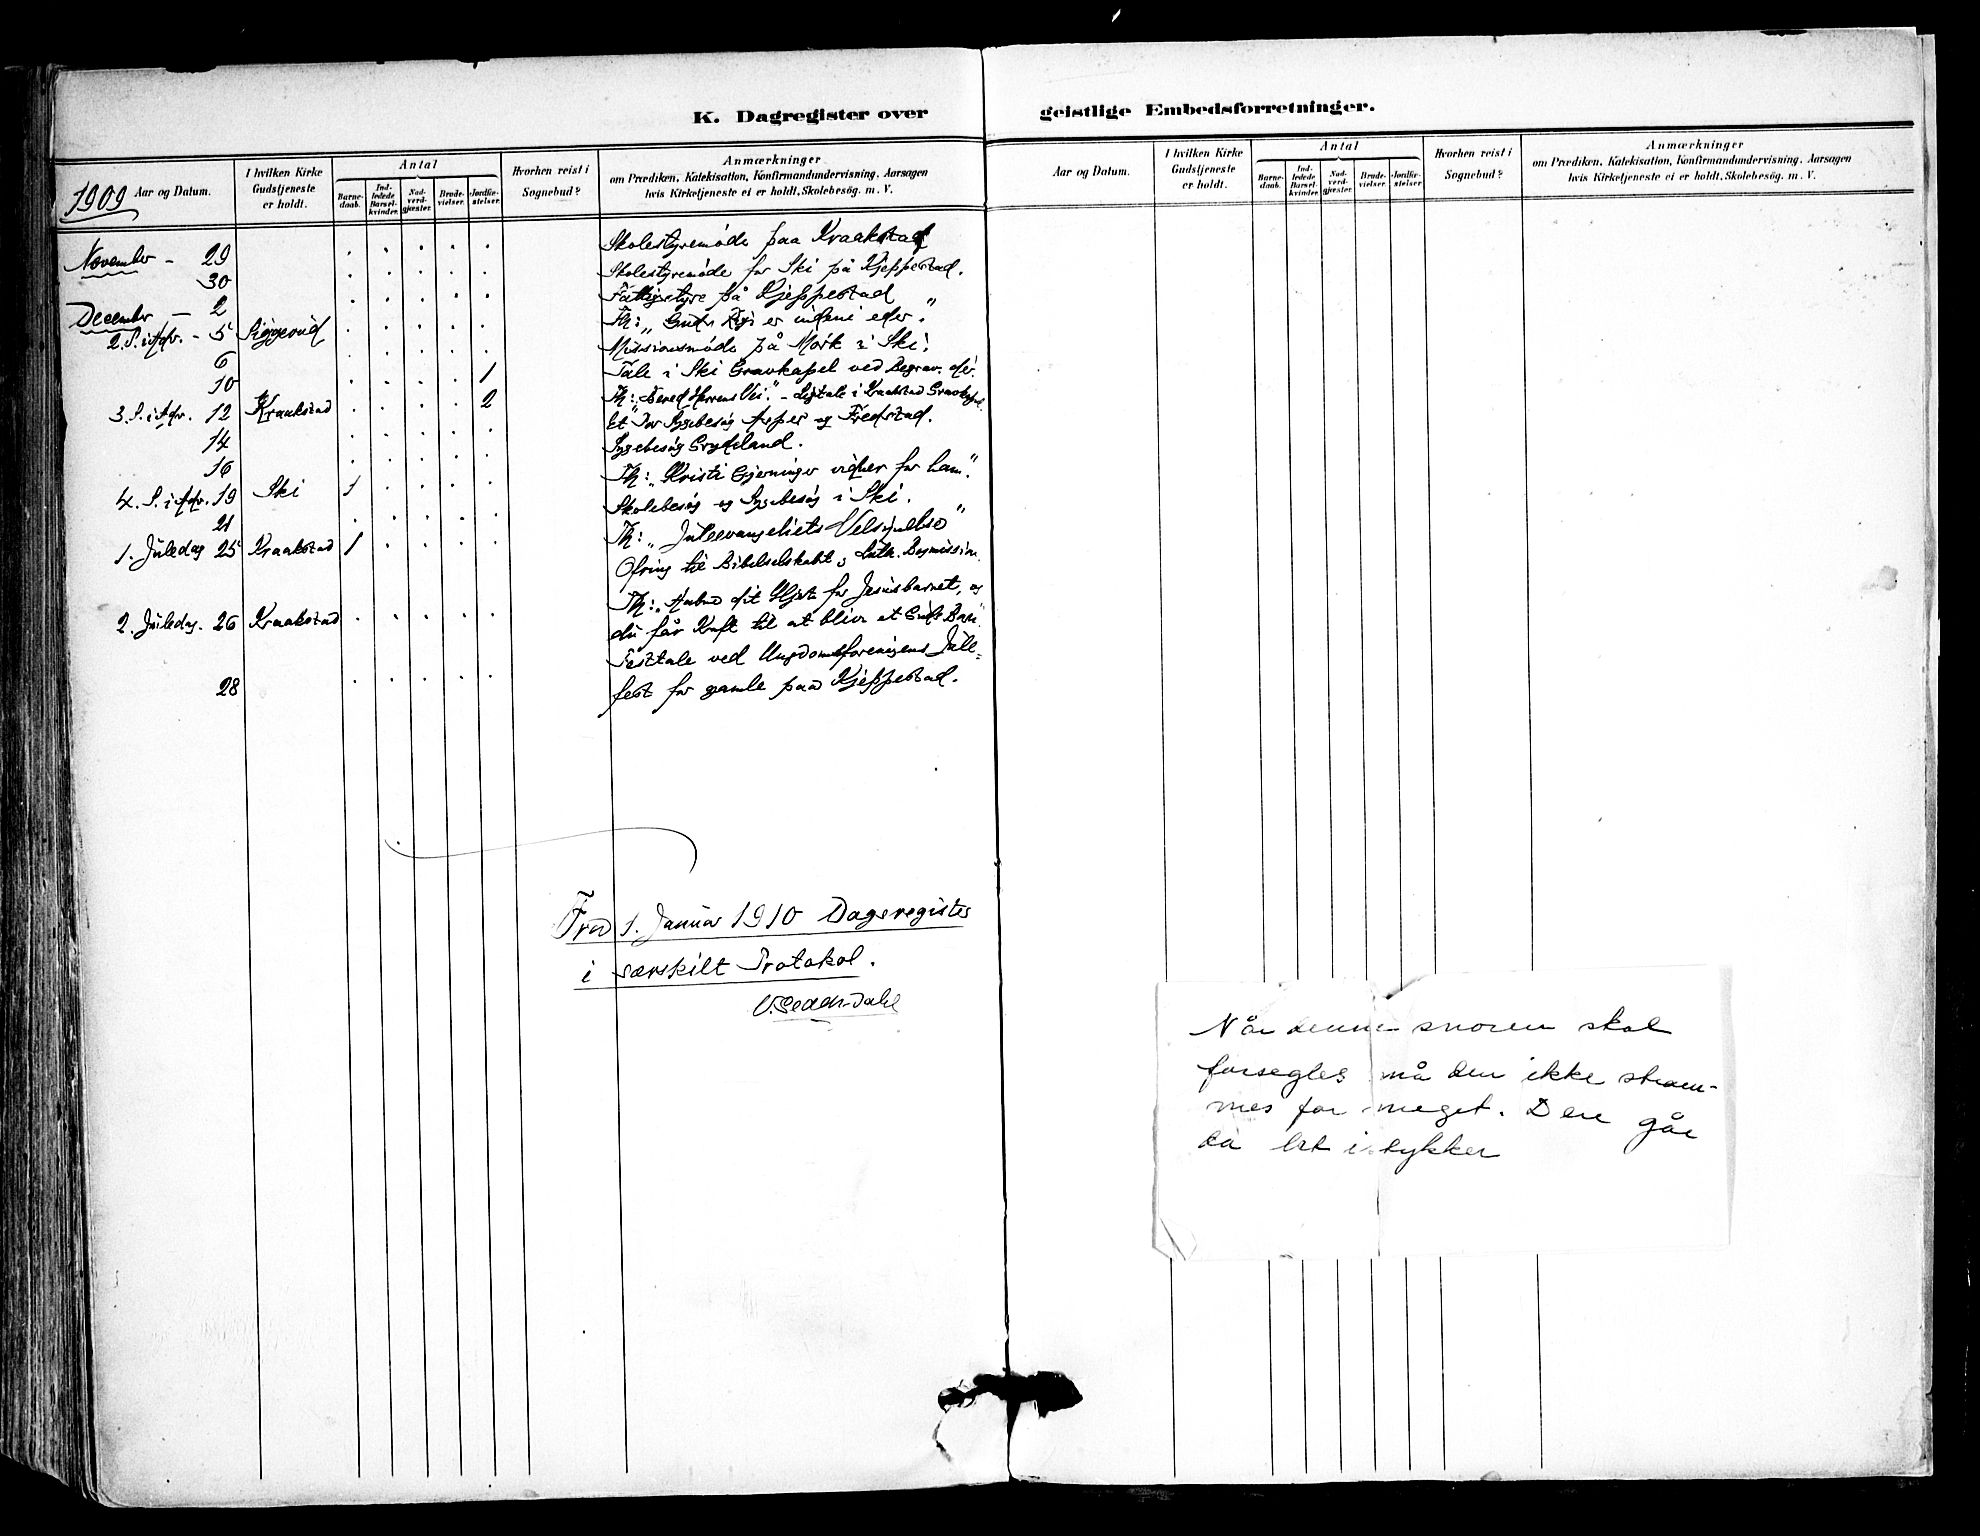 K. Dagregister over geistlige Embedsforretninger.
1909 Aar og Datum.
I hvilken Kirke Gudstjeneste er holdt.
Antal
Barnedaab.
Indledede Barselkvinder.
Nadverdgjæster.
Brudevielser.
Jordfæstelser.
Hvorhen reist i Sognebud?
Anmærkninger
om Prædiken, Katekisation, Konfirmandundervisning, Aarsagen
hvis Kirketjeneste ei er holdt, Skolebesøg. m. V.
November - 29 Skolestyremøde paa Kraakstad
30 Skolestyremøde for Ski på Kjeppestad.
December - 2 Fattigstyre på Kjeppestad
2. S. i Adv. - 5 Siggerud Th: „Guds Rige er indeni eder."
6 Missionsmøde på Mork i Ski.
10 1 Tale i Ski Gravkapel ved Begrav.
3. S. i Adv. 12 Kraakstad 2 Th: „Bered Herrens Vei." - Ligtale i Kraakstad Gravkapel.
14 Sygebesøg og Fredstad.
16 Sygebesøg Grydeland.
4. S. i Adv. 19 Ski 1 Th: „Kristi Gjerninger vidner for ham".
21 Skolebesøg og Sygebesøg i Ski.
1. Juledag 25 Kraakstad 1 Th: „Juleevangeliets Velsignelse"
Ofring til Bibelselskabet
2. Juledag. 26 Kraakstad Th: dit Hjerte for Jesusbarnet, og
du får Kraft til at blive et Guds Barn"
28 Festtale ved Ungdomsforeningens Jule=
fest for gamle paa Kjeppestad.
Fra 1. Januar 1910 Dagsregister
i særskilt Protokol.
Aar og Datum.
I hvilken Kirke Gudstjeneste er holdt.
Antal
Barnedaab.
Indledede Barselkvinder.
Nadverdgjæster.
Brudevielser.
Jordfæstelser
Hvorhen reist i Sognebud?
Anmærkninger
om Prædiken, Katekisation, Konfirmandundervisning, Aarsagen
hvis Kirketjeneste ei er holdt, Skolebesøg. m. V.
Når denne snoren skal
forsegles må den ikke stram-
mes for meget. Den går
da let istykker